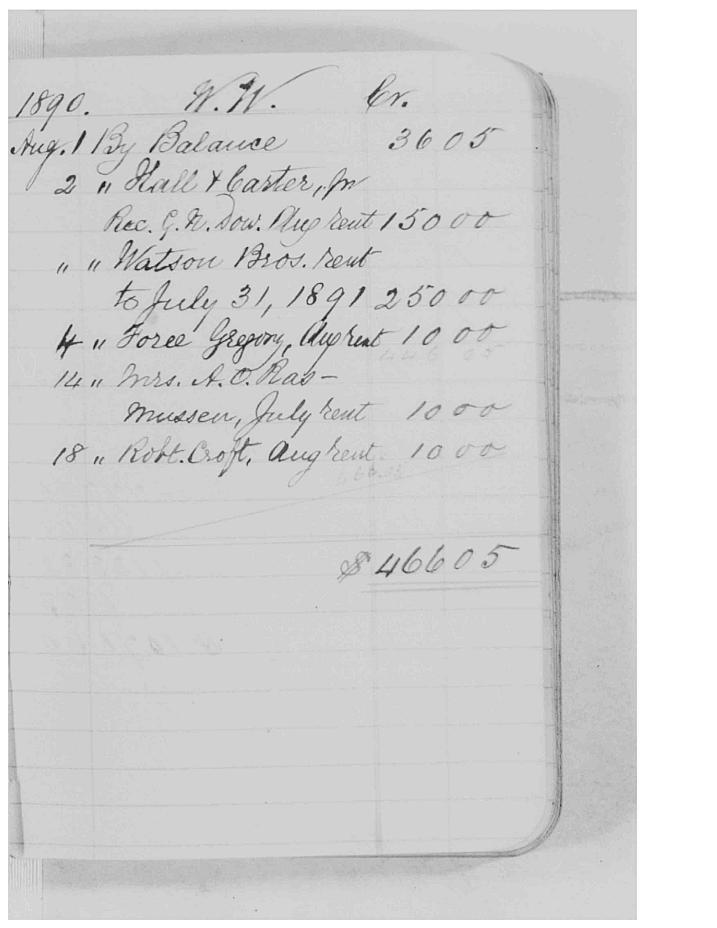 1890. W.W. Cr.
Aug. 1 By Balance 36 05
2 " Hall & Carter, for
Rec. G. N. Dow. Aug rent 150 00
" " Watson Bros. rent
to July 31, 1891 250 00
4 " Force Gregory, Aug rent 10 00
446 05
14 " Mrs. A. O. Ras-
mussen, July rent 10 00
18 " Robt. Croft, Aug rent 10 00
466.05
$ 466 05